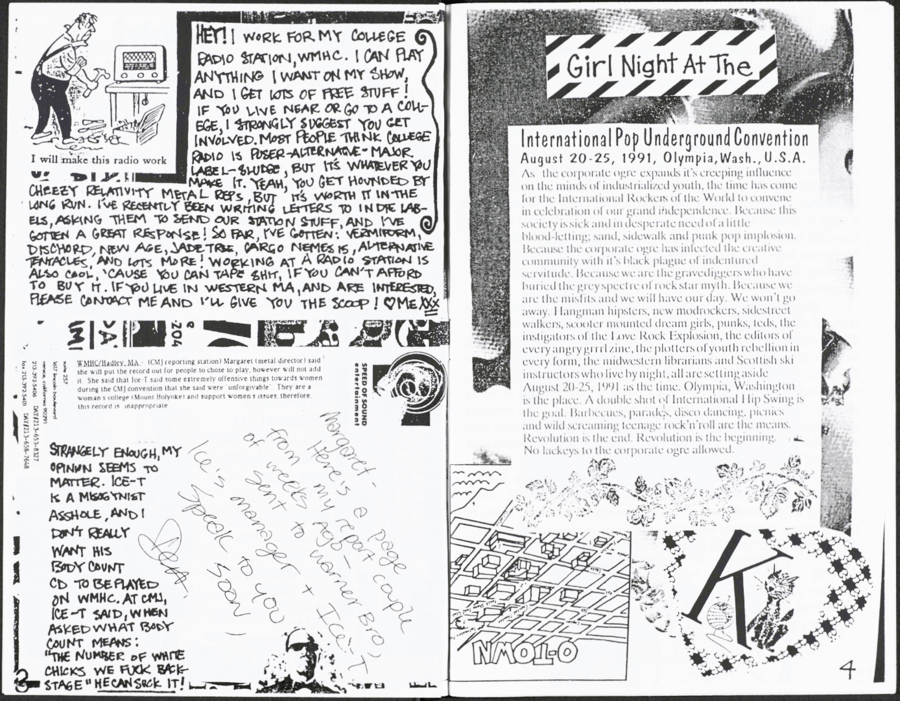 I will make this radio work
HEY! I WORK FOR MY COLLEGE
RADIO STATION, WMHC. I CAN PLAY
ANYTHING I WANT ON MY SHOW,
AND I GET LOTS OF FREE STUFF!
IF YOU LIVE NEAR OR GO TO A COLL-
EGE, I STRONGLY SUGGEST YOU GET
INVOLVED. MOST PEOPLE THINK COLLEGE
RADIO IS POSER-ALTERNATIVE-MAJOR
LABEL-SLUDGE, BUT IT'S WHATEVER YOU
MAKE IT. YEAH, YOU GET HOUNDED BY
CHEEZY RELATIVITY METAL REP'S, BUT IT'S WORTH IT IN THE
LONG RUN. I'VE RECENTLY BEEN WRITING LETTERS TO INDIE LAB-
ELS, ASKING THEM TO SEND OUR STATION STUFF, AND I'VE
GOTTEN A GREAT RESPONSE! SO FAR, I'VE GOTTEN: VERMIFORM,
DISCHORD, NEW AGE, JADE TREE, CARGO NEMESIS, ALTERNATIVE
TENTACLES, AND LOTS MORE! WORKING AT A RADIO STATION IS
ALSO COOL, 'CAUSE YOU CAN TAPE SHIT, IF YOU CAN'T AFFORD
TO BUY IT. IF YOU LIVE IN WESTERN MA, AND ARE INTERESTED,
PLEASE CONTACT ME AND I'LL GIVE YOU THE SCOOP! ♡ ME XXX
204
WMHC/Hadley, MA - (CMJ reporting station) Margaret (metal director) said
she will put the record out for people to chose to play, however will not add
it. She said that Ice-T said some extremely offensive things towards women
during the CMJ convention that she said were unforgivable. They are a
woman's college (Mount Holyoke) and support women's issues, therefore,
this record is inappropriate.
SPEED OF SOUND
entertainment
STRANGELY ENOUGH, MY
OPINION SEEMS TO
MATTER. ICE-T
IS A MISOGYNIST
ASSHOLE, AND I
DON'T REALLY
WANT HIS
BODY COUNT
CD TO BE PLAYED
ON WMHC. AT CMJ,
ICE-T SAID, WHEN
ASKED WHAT BODY
COUNT MEANS:
"THE NUMBER OF WHITE
CHICKS WE FUCK BACK-
STAGE" HE CAN SUCK IT!
Margaret
Here's a page
from my report couple
of weeks ago -
sent to Warner Bro,
Ice's manager + Ice-T
Speak to you
soon,
3
Girl Night At The
International Pop Underground Convention
August 20-25, 1991, Olympia, Wash., U.S.A.
As the corporate ogre expands it's creeping influence
on the minds of industrialized youth, the time has come
for the International Rockers of the World to convene
in celebration of our grand independence. Because this
society is sick and in desperate need of a little
blood-letting; sand, sidewalk and punk pop implosion.
Because the corporate ogre has infected the creative
community with it's black plague of indentured
servitude. Because we are the gravediggers who have
buried the grey spectre of rock star myth. Because we
are the misfits and we will have our day. We won't go
away. Hangman hipsters, new modrockers, sidestreet
walkers, scooter mounted dream girls, punks, teds, the
instigators of the Love Rock Explosion, the editors of
every angry grrl zine, the plotters of youth rebellion in
every form, the midwestern librarians and Scottish ski
instructors who live by night, all are setting aside
August 20-25, 1991 as the time. Olympia, Washington
is the place. A double shot of International Hip Swing is
the goal. Barbecues, parades, disco dancing, picnics
and wild screaming teenage rock'n'roll are the means.
Revolution is the end. Revolution is the beginning.
No lackeys to the corporate ogre allowed.
O-TOWN
K
4